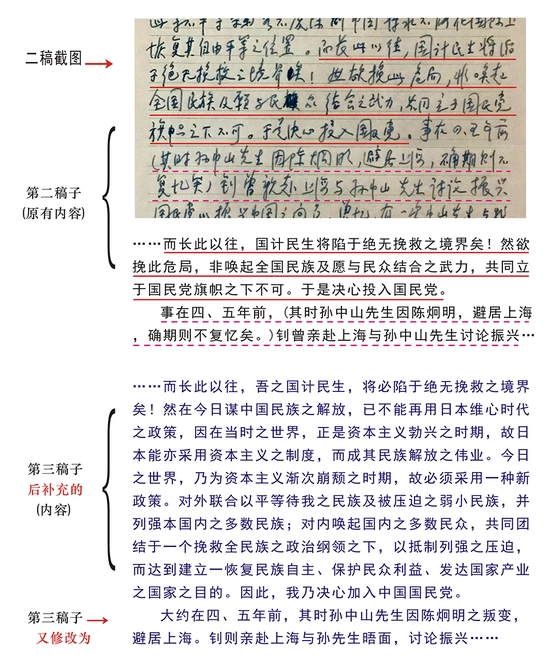 二稿截图
恢复其自由平等之位置。而长此以往,国计民生将陷
于绝无挽救之境界矣!然欲挽此危局,非唤起
全国民族及愿与民众结合之武力,共同立于国民党
旗帜之下不可。于是决心投入国民党。事在四、五年前
(其时孙中山先生因陈炯明,避居上海,确期则不
复忆矣)钊曾亲赴上海与孙中山先生讨论振兴
第二稿子
(原有内容)
……而长此以往,国计民生将陷于绝无挽救之境界矣!然欲
挽此危局,非唤起全国民族及愿与民众结合之武力,共同立
于国民党旗帜之下不可。于是决心投入国民党。
事在四、五年前,(其时孙中山先生因陈炯明,避居上海
,确期则不复忆矣。)钊曾亲赴上海与孙中山先生讨论振兴…
第三稿子
后补充的
(内容)
……而长此以往,吾之国计民生,将必陷于绝无挽救之境界
矣!然在今日谋中国民族之解放,已不能再用日本维心时代
之政策,因在当时之世界,正是资本主义勃兴之时期,故日
本能亦采用资本主义之制度,而成其民族解放之伟业。今日
之世界,乃为资本主义渐次崩颓之时期,故必须采用一种新
政策。对外联合以平等待我之民族及被压迫之弱小民族,并
列强本国内之多数民族;对内唤起国内之多数民众,共同团
结于一个挽救全民族之政治纲领之下,以抵制列强之压迫,
而达到建立一恢复民族自主、保护民众利益、发达国家产业
之国家之目的。因此,我乃决心加入中国国民党。
第三稿子
又修改为
大约在四、五年前,其时孙中山先生因陈炯明之叛变,
避居上海。钊则亲赴上海与孙先生晤面,讨论振兴……